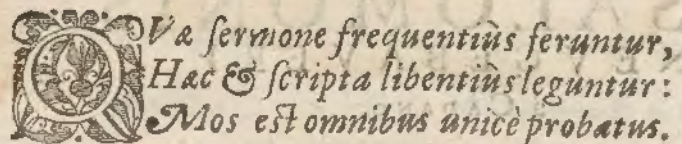 QVæ sermone frequentiùs feruntur,
Hæc & scripta libentiùs leguntur:
Mos est omnibus unicè probatus.